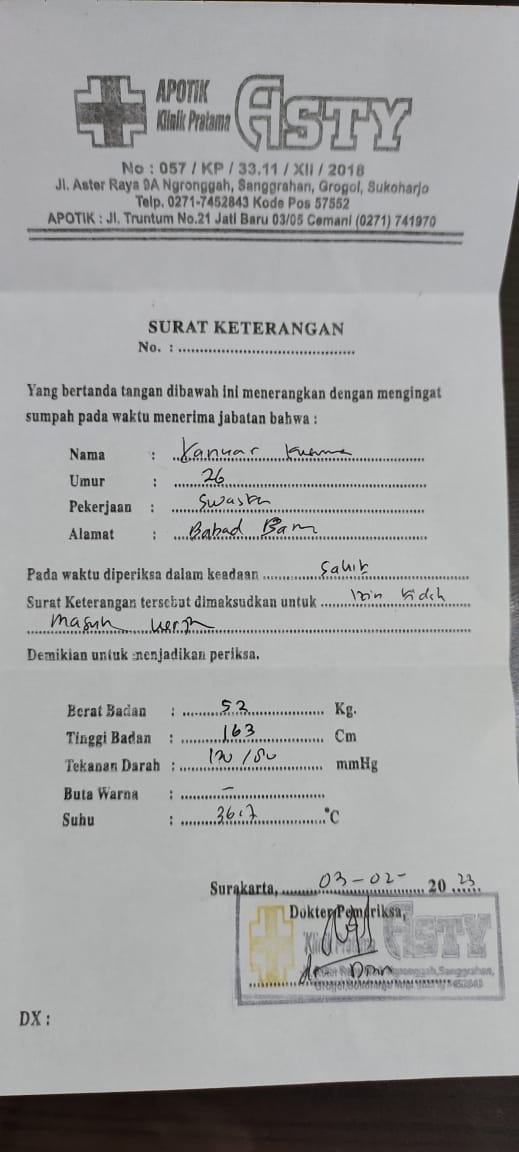 APOTiK
Klinik Pratama
ASTY
No : 057 / KP / 33.11 / XII / 2018
Jl. Aster Raya 9A Ngronggah, Sanggrahan, Grogol, Sukoharjo
Telp. 0271-7452843 Kode Pos 57552
APOTIK : Jl. Truntum No.21 Jati Baru 03/05 Cemani (0271) 741970
SURAT KETERANGAN
No. :
Yang bertanda tangan dibawah ini menerangkan dengan mengingat
sumpah pada waktu menerima jabatan bahwa :
Nama : Yanuar
Umur : 26
Pekerjaan : Swasta
Alamat : Babad
Pada waktu diperiksa dalam keadaan Sakit
Surat Keterangan tersebut dimaksudkan untuk Izin tidak
Masuk kerja
Demikian untuk menjadikan periksa.
Berat Badan : 52 Kg.
Tinggi Badan : 163 Cm
Tekanan Darah : 120/80 mmHg
Buta Warna : -
Suhu : 36.7 °C
Surakarta, 03-02- 2023
Dokter Pemeriksa,
Klinik Pratama
ASTY
dr.
Ngronggah, Sanggrahan,
DX :